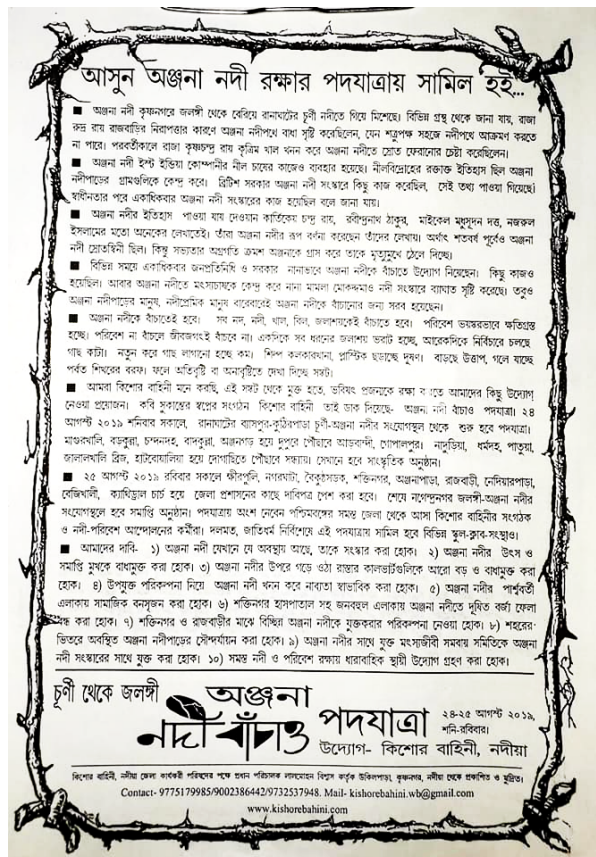 আসুন অঞ্জনা নদী রক্ষার পদযাত্রায় সামিল হই...
■ অঞ্জনা নদী কৃষ্ণনগরে জলঙ্গী থেকে বেরিয়ে রানাঘাটের চূর্ণী নদীতে গিয়ে মিশেছে। বিভিন্ন গ্রন্থ থেকে জানা যায়, রাজা
রুদ্র রায় রাজবাড়ির নিরাপত্তার কারণে অঞ্জনা নদীপথে বাধা সৃষ্টি করেছিলেন, যেন শত্রুপক্ষ সহজে নদীপথে আক্রমণ করতে
না পারে। পরবর্তীকালে রাজা কৃষ্ণচন্দ্র রায় কৃত্রিম খাল খনন করে অঞ্জনা নদীতে স্রোত ফেরানোর চেষ্টা করেছিলেন।
■ অঞ্জনা নদী ইস্ট ইন্ডিয়া কোম্পানীর নীল চাষের কাজেও ব্যবহার হয়েছে। নীলবিদ্রোহের রক্তাক্ত ইতিহাস ছিল অঞ্জনা
নদীপাড়ের গ্রামগুলিকে কেন্দ্র করে। ব্রিটিশ সরকার অঞ্জনা নদী সংস্কারে কিছু কাজ করেছিল, সেই তথ্য পাওয়া গিয়েছে।
স্বাধীনতার পরে একাধিকবার অঞ্জনা নদী সংস্কারের কাজ হয়েছিল বলে জানা যায়।
■ অঞ্জনা নদীর ইতিহাস পাওয়া যায় দেওয়ান কার্তিকেয় চন্দ্র রায়, রবীন্দ্রনাথ ঠাকুর, মাইকেল মধুসূদন দত্ত, নজরুল
ইসলামের মতো অনেকের লেখাতেই। তাঁরা অঞ্জনা নদীর রূপ বর্ণনা করেছেন তাঁদের লেখায়। অর্থাৎ শতবর্ষ পূর্বেও অঞ্জনা
নদী স্রোতস্বিনী ছিল। কিন্তু সভ্যতার অগ্রগতি ক্রমশ অঞ্জনাকে গ্রাস করে তাকে মৃত্যুমুখে ঠেলে দিচ্ছে।
■ বিভিন্ন সময়ে একাধিকবার জনপ্রতিনিধি ও সরকার নানাভাবে অঞ্জনা নদীকে বাঁচাতে উদ্যোগ নিয়েছেন। কিছু কাজও
হয়েছিল। আবার অঞ্জনা নদীতে মৎস্যচাষকে কেন্দ্র করে নানা মামলা মোকদ্দমাও নদী সংস্কারে ব্যাঘাত সৃষ্টি করেছে। তবুও
অঞ্জনা নদীপাড়ের মানুষ, নদীপ্রেমিক মানুষ বারেবারেই অঞ্জনা নদীকে বাঁচানোর জন্য সরব হয়েছেন।
■ অঞ্জনা নদীকে বাঁচাতেই হবে। সব নদ, নদী, খাল, বিল, জলাশয়কেই বাঁচাতে হবে। পরিবেশ ভয়ঙ্করভাবে ক্ষতিগ্রস্ত
হচ্ছে। পরিবেশ না বাঁচলে জীবজগৎই বাঁচবে না। একদিকে সব ধরনের জলাশয় ভরাট হচ্ছে, আরেকদিকে নির্বিচারে চলছে
গাছ কাটা। নতুন করে গাছ লাগানো হচ্ছে কম। শিল্প কলকারখানা, প্লাস্টিক ছড়াচ্ছে দূষণ। বাড়ছে উত্তাপ, গলে যাচ্ছে
পর্বত শিখরের বরফ। ফলে অতিবৃষ্টি বা অনাবৃষ্টিতে দেখা দিচ্ছে সঙ্কট।
■ আমরা কিশোর বাহিনী মনে করছি, এই সঙ্কট থেকে মুক্ত হতে, ভবিষ্যৎ প্রজন্মকে রক্ষা করতে আমাদের কিছু উদ্যোগ
নেওয়া প্রয়োজন। কবি সুকান্তের স্বপ্নের সংগঠন কিশোর বাহিনী তাই ডাক দিয়েছে- অঞ্জনা নদী বাঁচাও পদযাত্রা। ২৪
আগস্ট ২০১৯ শনিবার সকালে, রানাঘাটের ব্যাসপুর-কুঠিরপাড়া চূর্ণী-অঞ্জনা নদীর সংযোগস্থল থেকে শুরু হবে পদযাত্রা।
মাগুরখালি, বড়কুল্লা, চন্দনদহ, বাদকুল্লা, অঞ্জনগড় হয়ে দুপুরে পৌঁছাবে আড়বান্দী, গোপালপুর। নাদুড়িয়া, ধর্মদহ, পাতুয়া,
জালালখালি ব্রিজ, হাটবোয়ালিয়া হয়ে দোগাছিতে পৌঁছাবে সন্ধ্যায়। সেখানে হবে সাংস্কৃতিক অনুষ্ঠান।
■ ২৫ আগস্ট ২০১৯ রবিবার সকালে ক্ষীরপুলি, নগরঘাটা, বৈকুণ্ঠসড়ক, শক্তিনগর, অঞ্জনাপাড়া, রাজবাড়ী, নেদিয়ারপাড়া,
বেজিখালী, ক্যাথিড্রাল চার্চ হয়ে জেলা প্রশাসনের কাছে দাবিপত্র পেশ করা হবে। শেষে নগেন্দ্রনগর জলঙ্গী-অঞ্জনা নদীর
সংযোগস্থলে হবে সমাপ্তি অনুষ্ঠান। পদযাত্রায় অংশ নেবেন পশ্চিমবঙ্গের সমস্ত জেলা থেকে আসা কিশোর বাহিনীর সংগঠক
ও নদী-পরিবেশ আন্দোলনের কর্মীরা। দলমত, জাতিধর্ম নির্বিশেষে এই পদযাত্রায় সামিল হবে বিভিন্ন স্কুল-ক্লাব-সংস্থাও।
■ আমাদের দাবি- ১) অঞ্জনা নদী যেখানে যে অবস্থায় আছে, তাকে সংস্কার করা হোক। ২) অঞ্জনা নদীর উৎস ও
সমাপ্তি মুখকে বাধামুক্ত করা হোক। ৩) অঞ্জনা নদীর উপরে গড়ে ওঠা রাস্তার কালভার্টগুলিকে আরো বড় ও বাধামুক্ত করা
হোক। ৪) উপযুক্ত পরিকল্পনা নিয়ে অঞ্জনা নদী খনন করে নাব্যতা স্বাভাবিক করা হোক। ৫) অঞ্জনা নদীর পার্শ্ববর্তী
এলাকায় সামাজিক বনসৃজন করা হোক। ৬) শক্তিনগর হাসপাতাল সহ জনবহুল এলাকায় অঞ্জনা নদীতে দূষিত বর্জ্য ফেলা
বন্ধ হোক। ৭) শক্তিনগর ও রাজবাড়ীর মাঝে বিচ্ছিন্ন অঞ্জনা নদীকে যুক্তকরার পরিকল্পনা নেওয়া হোক। ৮) শহরের-
ভিতরে অবস্থিত অঞ্জনা নদীপাড়ের সৌন্দর্যায়ন করা হোক। ৯) অঞ্জনা নদীর সাথে যুক্ত মৎস্যজীবী সমবায় সমিতিকে অঞ্জনা
নদী সংস্কারের সাথে যুক্ত করা হোক। ১০) সমস্ত নদী ও পরিবেশ রক্ষায় ধারাবাহিক স্থায়ী উদ্যোগ গ্রহণ করা হোক।
চূর্ণী থেকে জলঙ্গী
অঞ্জনা
নদী বাঁচাও পদযাত্রা
২৪-২৫ আগস্ট ২০১৯,
শনি-রবিবার।
উদ্যোগ- কিশোর বাহিনী, নদীয়া
কিশোর বাহিনী, নদীয়া জেলা কার্যকরী পরিষদের পক্ষে প্রধান পরিচালক লালমোহন বিশ্বাস কর্তৃক উকিলপাড়া, কৃষ্ণনগর, নদীয়া থেকে প্রকাশিত ও মুদ্রিত।
Contact- 9775179985/9002386442/9732537948. Mail- kishorebahini.wb@gmail.com
www.kishorebahini.com